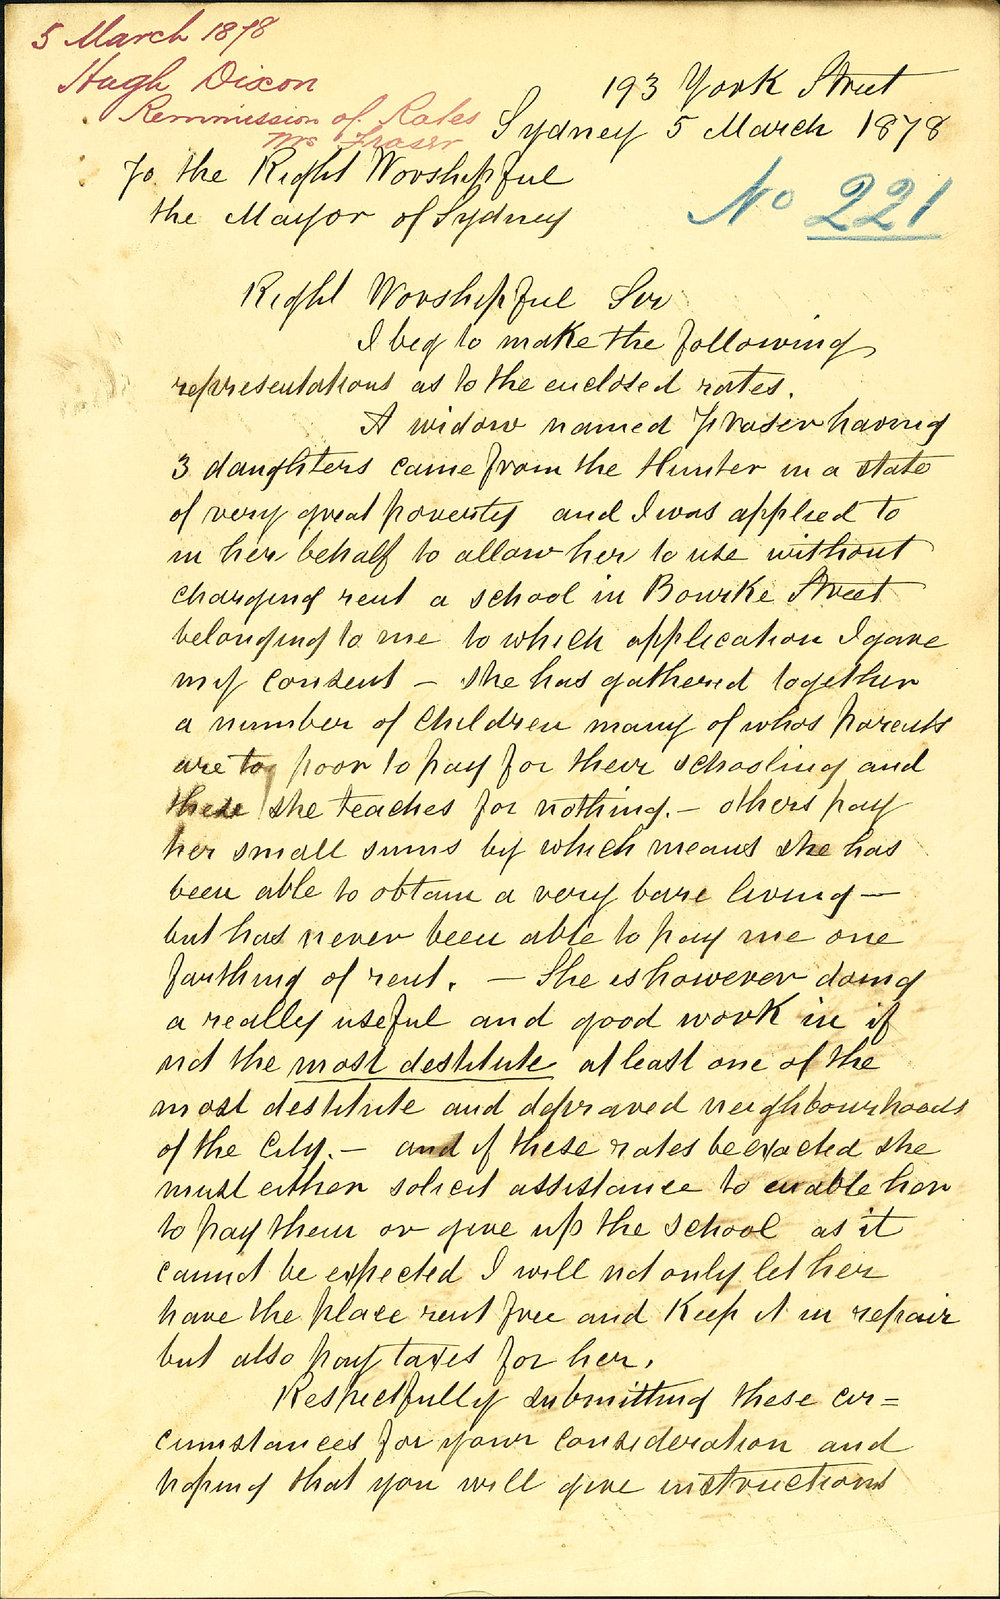 5 March 1878
Hugh Dixon
Remmission of Rates
Mrs Fraser
193 York Street
Sydney 5 March 1878
No 221
To the Right Worshipful
the Mayor of Sydney
Right Worshipful Sir
I beg to make the following
representations as to the enclosed rates.
A widow named Fraser having
3 daughters came from the Hunter in a state
of very great poverty and I was applied to
in her behalf to allow her to use without
charging rent a school in Bourke Street
belonging to me to which application I gave
my consent – She has gathered together
a number of Children many of whos parents
are to poor to pay for their schooling and
these she teaches for nothing. – others pay
her small sums by which means she has
been able to obtain a very bare living –
but has never been able to pay me one
farthing of rent. – She is however doing
a really useful and good work in if
not the most destitute at least one of the
most destitute and depraved neighbourhoods
of the City. – and if these rates be exacted she
must either solicit assistance to enable her
to pay them or give up the School as it
cannot be expected I will not only let her
have the place rent free and Keep it in repair
but also pay taxes for her.
Respectfully submitting these cir=
cumstances for your consideration and
hoping that you will give instructions